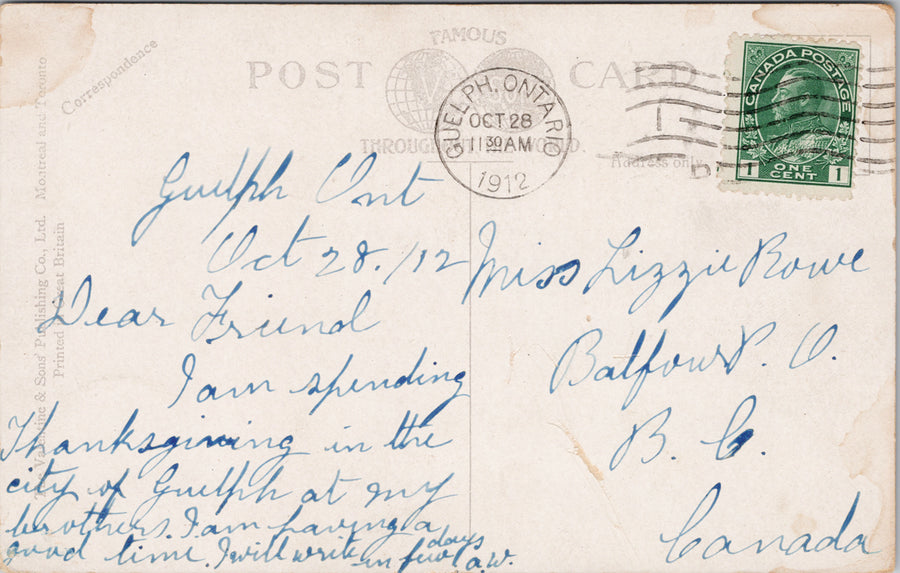 Correspondence
POST CARD
FAMOUS
THROUGHOUT THE WORLD.
Address only
The Valentine & Sons' Publishing Co., Ltd. Montreal and Toronto
Printed in Great Britain
GUELPH, ONTARIO
OCT 28
11 30 AM
1912
CANADA POSTAGE
1 ONE CENT 1
Guelph Ont
Oct 28./12
Dear Friend
I am spending
Thanksgiving in the
city of Guelph at my
brothers. I am having a
good time. I will write in few days
a.w.
Miss Lizzie Rowe
Balfour P. O.
B. C.
Canada